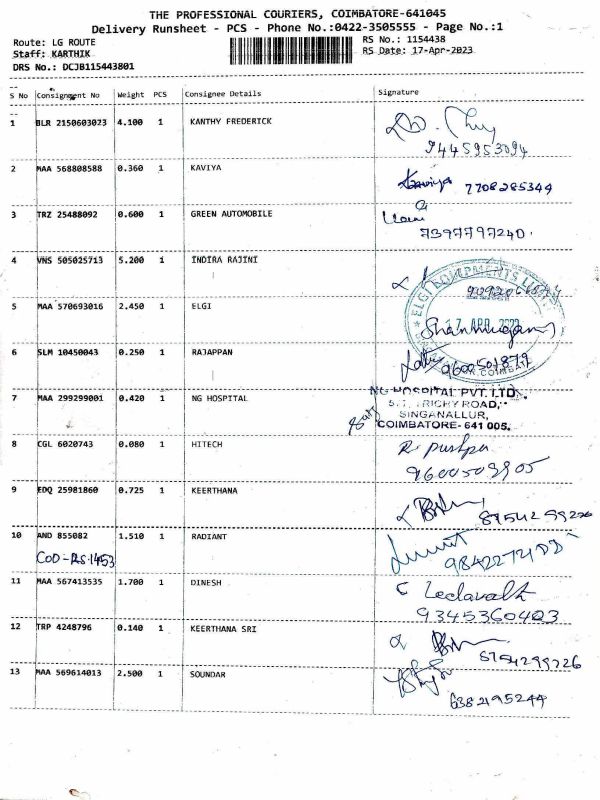 THE PROFESSIONAL COURIERS, COIMBATORE-641045
Delivery Runsheet - PCS - Phone No.:0422-3505555 - Page No.:1
Route: LG ROUTE
RS No.: 1154438
Staff: KARTHIK
RS Date: 17-Apr-2023
DRS No.: DCJB115443801
S No Consignment No Weight PCS Consignee Details Signature
1 BLR 2150603023 4.100 1 KANTHY FREDERICK
9445953094
2 MAA 568808588 0.360 1 KAVIYA Kaviya 7708285344
3 TRZ 25488092 0.600 1 GREEN AUTOMOBILE
7397797240.
4 VNS 505025713 5.200 1 INDIRA RAJINI
ELGI EQUIPMENTS
5 MAA 570693016 2.450 1 ELGI
17 APR 2023
Shanmugam
6 SLM 10450043 0.250 1 RAJAPPAN 9600501879
7 MAA 299299001 0.420 1 NG HOSPITAL
NG HOSPITAL PVT. LTD.
TRICHY ROAD,
SINGANALLUR,
COIMBATORE- 641 005.
8 CGL 6020743 0.080 1 HITECH R. pushpa
9600509905
9 EDQ 25981860 0.725 1 KEERTHANA
8754299226
10 AND 855082 1.510 1 RADIANT
COD-RS.1453
11 MAA 567413535 1.700 1 DINESH
9345360403
12 TRP 4248796 0.140 1 KEERTHANA SRI
8754299226
13 MAA 569614013 2.500 1 SOUNDAR
6382195244